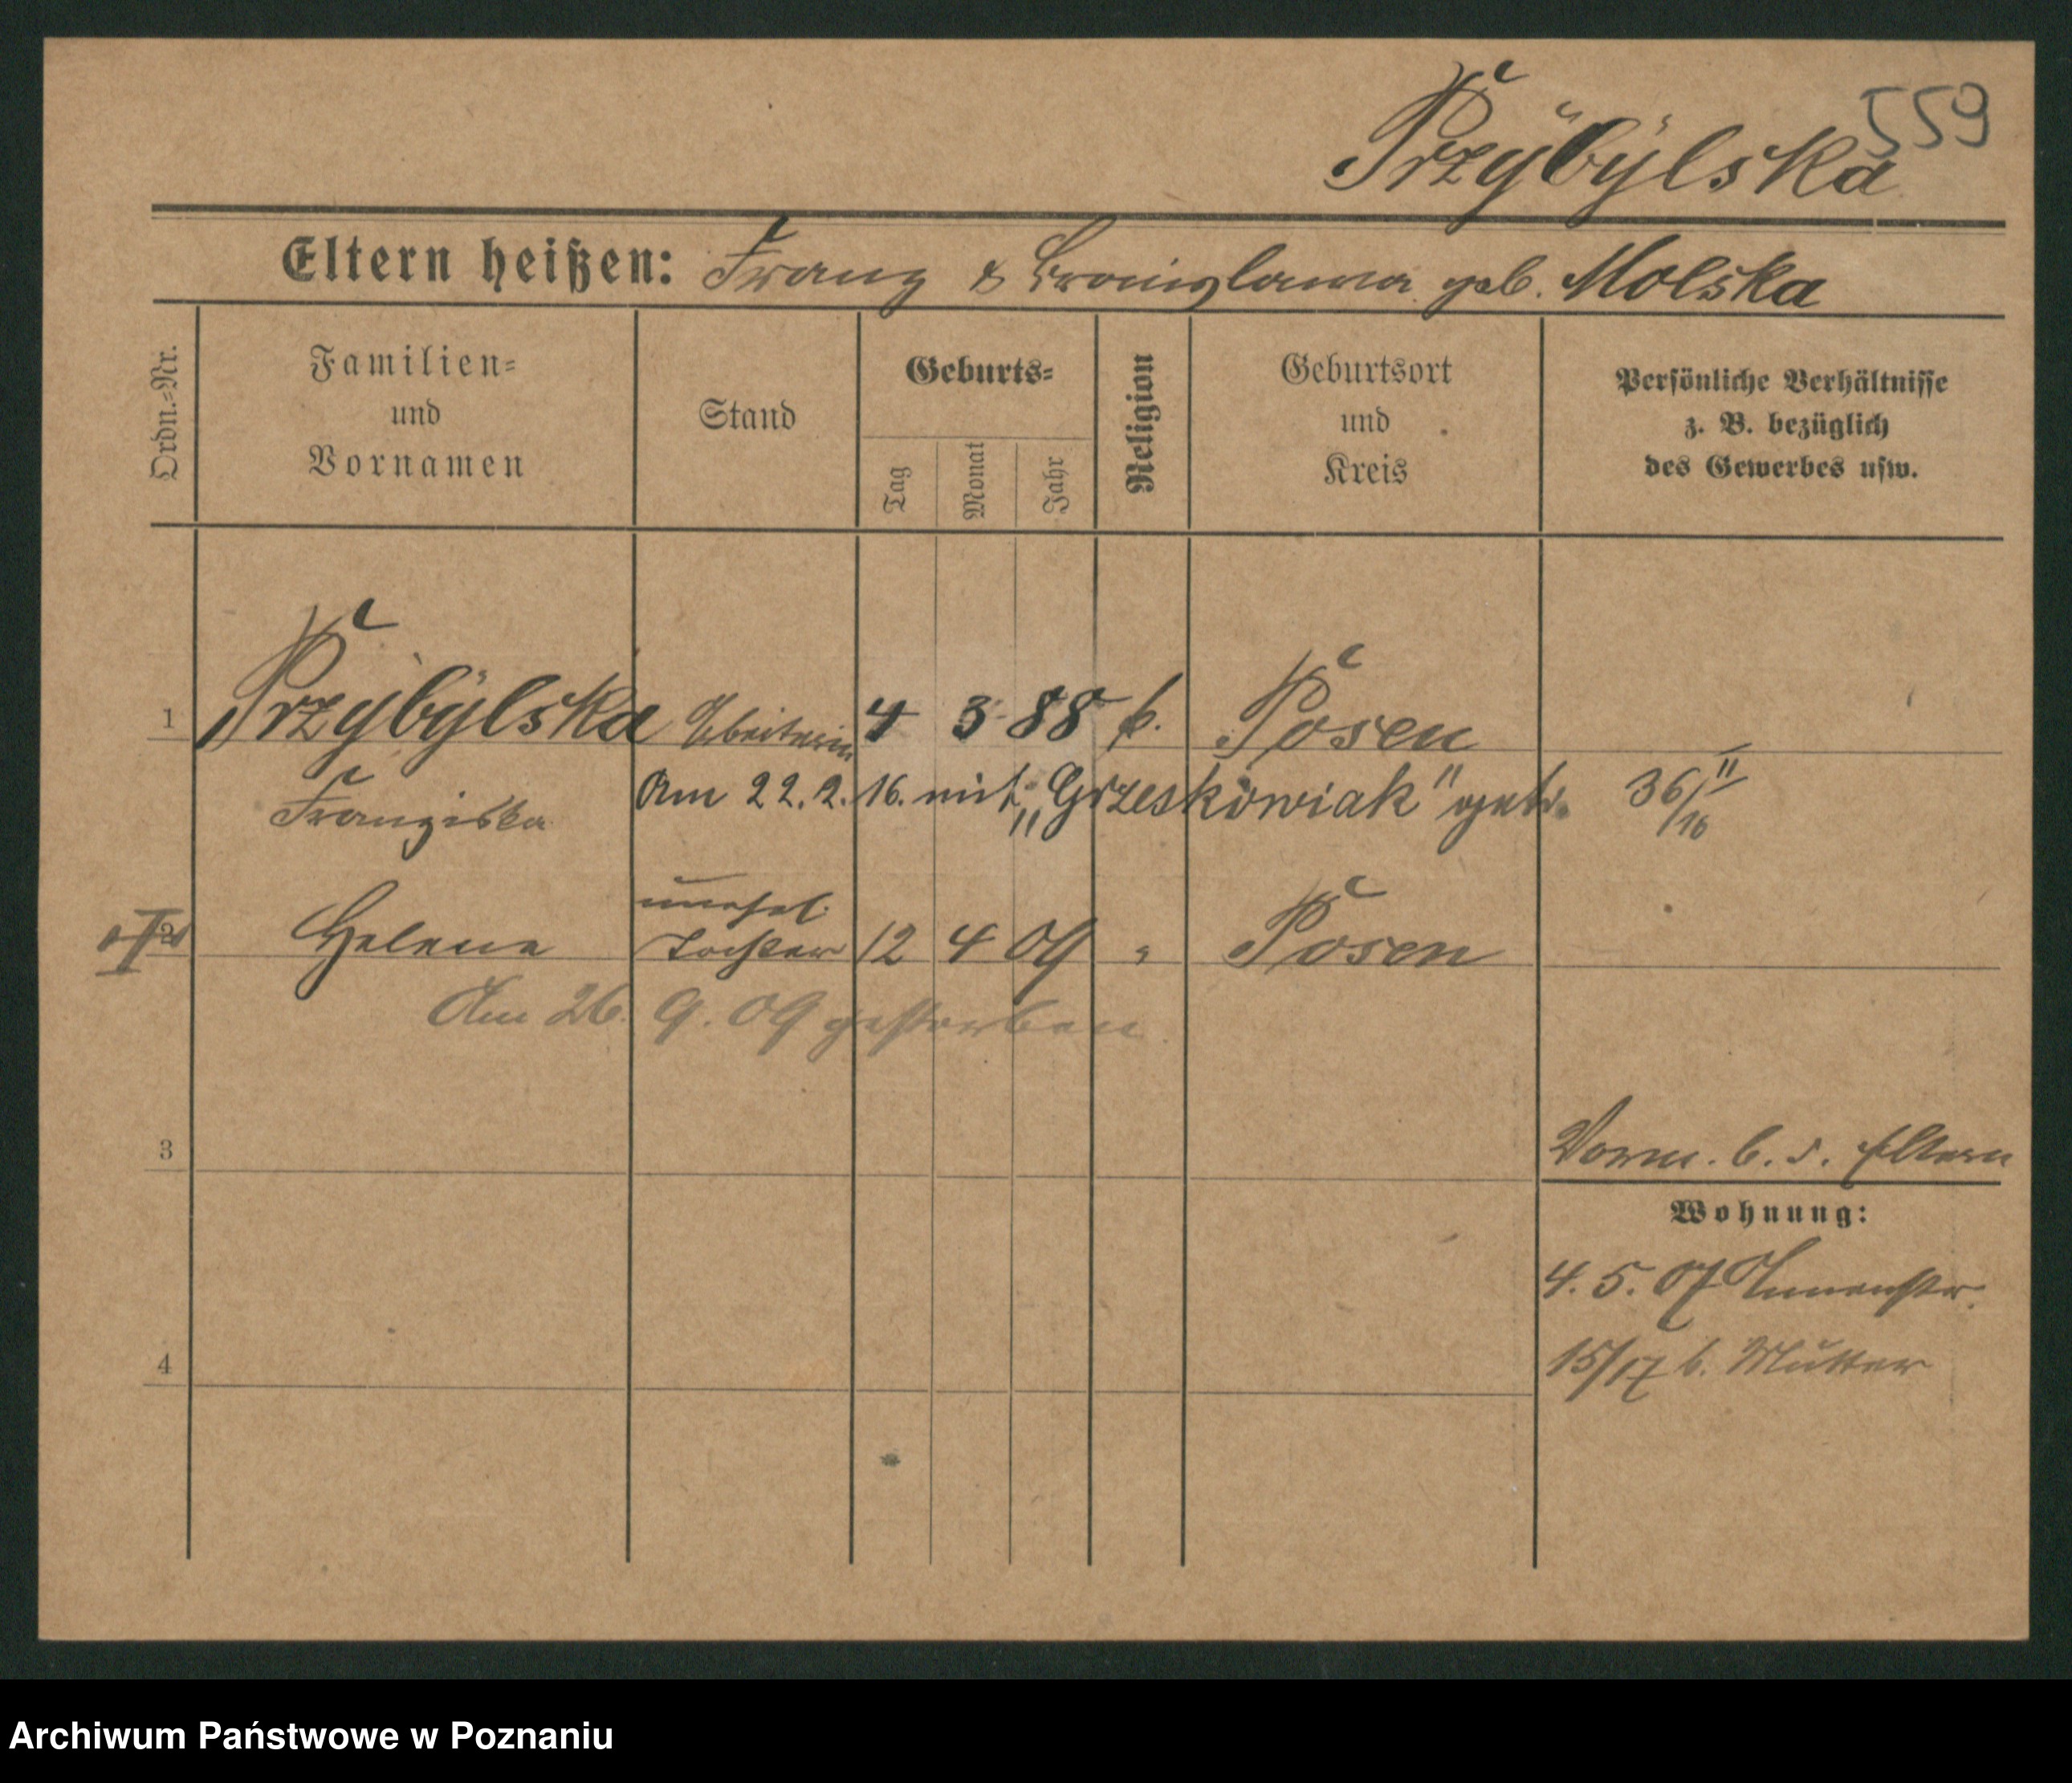 559
Przybylska
Eltern heißen: Franz & Bronislawa geb. Molska
Ordn.-Nr.
Familien-
und
Vornamen
Stand
Geburts-
Tag
Monat
Jahr
Religion
Geburtsort
und
Kreis
Persönliche Verhältnisse
z. B. bezüglich
des Gewerbes usw.
1 Przybylska Arbeiterin 4 3 88 k. Posen
Franziska Am 22. 2. 16. mit „Grzeskowiak" getr. 36/II/16
unehel.
2 Helene Tochter 12 4 09 " Posen
Am 26. 9. 09 gestorben
3
Vorm. b. d. Eltern
Wohnung:
4. 5. 07 Annenstr.
4
15/17 b. Mutter
Archiwum Państwowe w Poznaniu